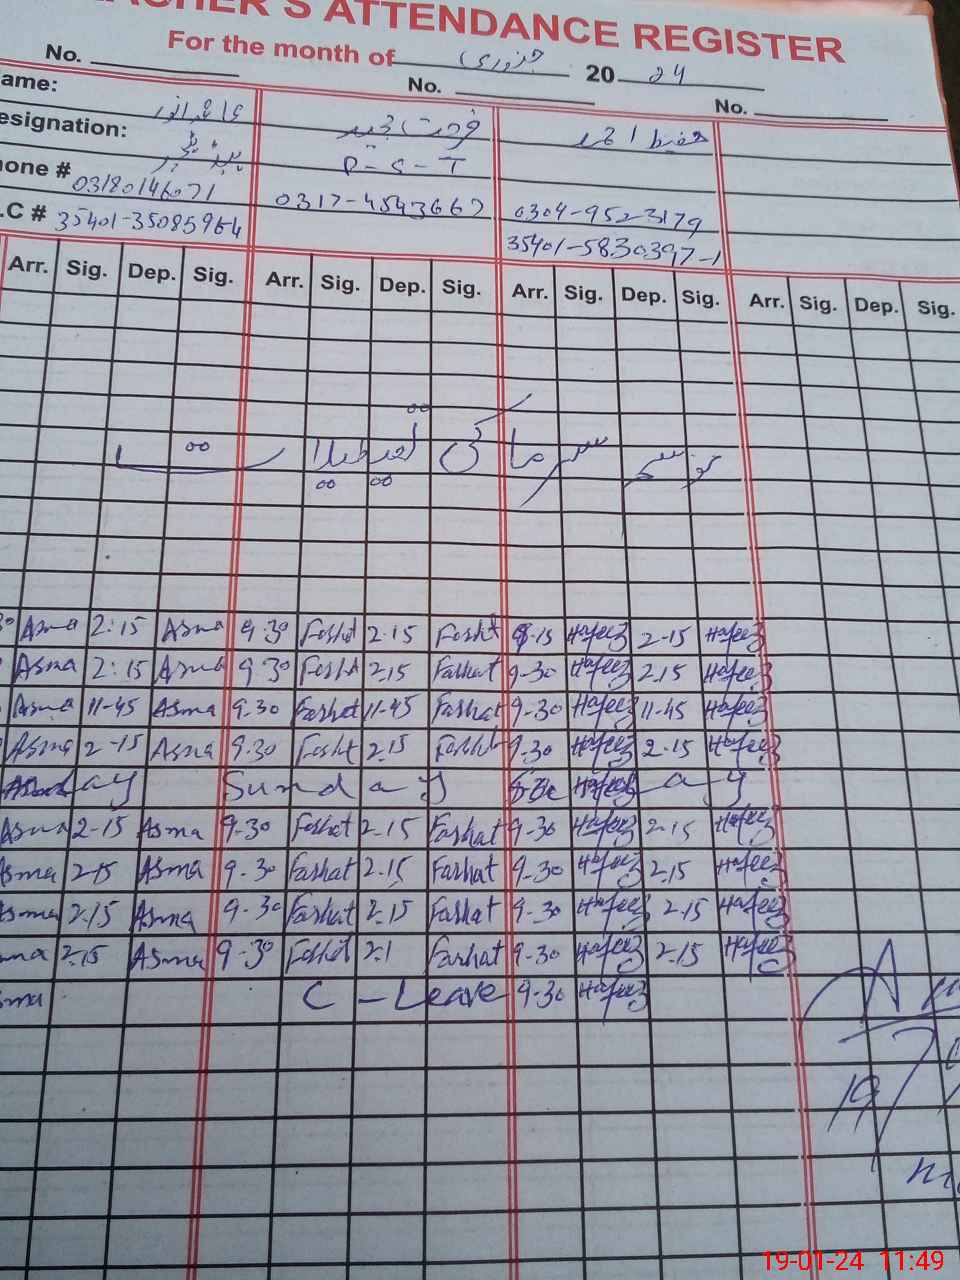 TEACHER'S ATTENDANCE REGISTER
For the month of جنوری 20 24
No. No. No.
ame: فرحت حفیظ احمد
esignation: P-S-T
hone # 03180146071 0317-4543667 0304-9523179
.C # 35401-35085964 35401-5830397-1
Arr. Sig. Dep. Sig. Arr. Sig. Dep. Sig. Arr. Sig. Dep. Sig. Arr. Sig. Dep. Sig.
موسم سرما کی تعطیلات
Asma 2:15 Asma 9.30 Farhat 2.15 Farhat 9-15 Hafeez 2-15 Hafeez
Asma 2:15 Asma 9.30 Farhat 2.15 Farhat 9-30 Hafeez 2.15 Hafeez
Asma 11-45 Asma 9.30 Farhat 11-45 Farhat 9-30 Hafeez 11-45 Hafeez
Asma 2-15 Asma 9.30 Farhat 2.15 Farhat 9.30 Hafeez 2-15 Hafeez
day Sunday day
Asma 2-15 Asma 9-30 Farhat 2.15 Farhat 9-30 Hafeez 2-15 Hafeez
sma 2-15 Asma 9-30 Farhat 2.15 Farhat 9-30 Hafeez 2.15 Hafeez
sma 2.15 Asma 9-30 Farhat 2.15 Farhat 9-30 Hafeez 2.15 Hafeez
ma 2.15 Asma 9-30 Farhat 2.1 Farhat 9-30 Hafeez 2.15 Hafeez
sma C - Leave 9-30 Hafeez
19
19-01-24 11:49